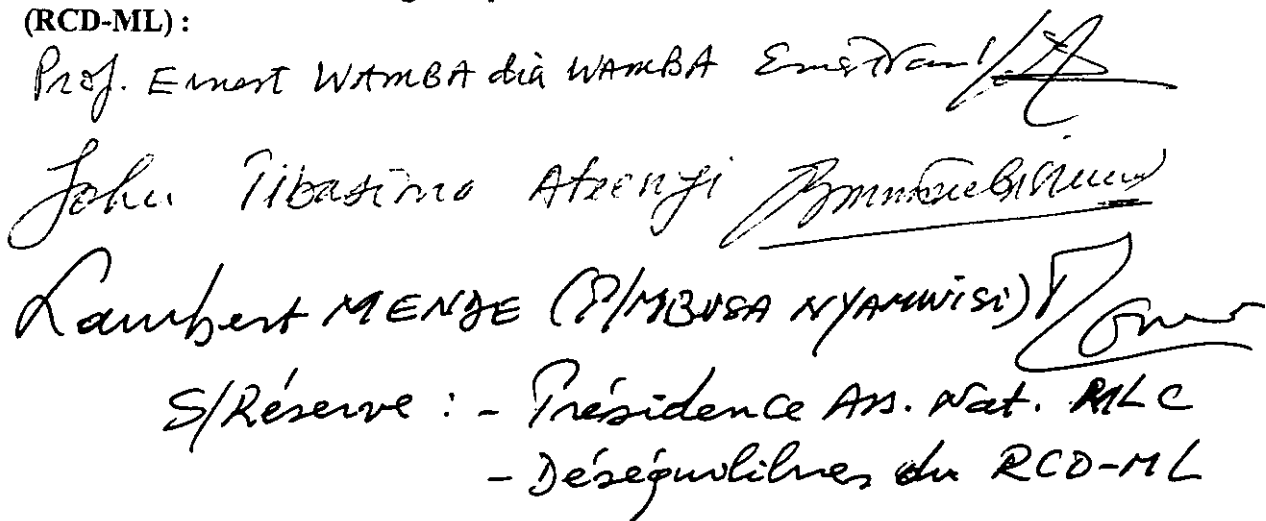 (RCD-ML) :
Prof. Ernest WAMBA dia WAMBA
John Tibasima Ateenyi
Lambert MENDE (P/MBUSA NYAMWISI)
S/Réserve : - Présidence Ass. Nat. MLC
- Déséquilibres du RCD-ML